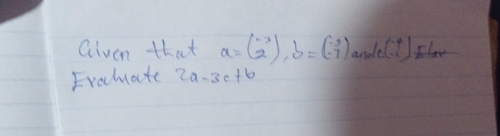 Given that a = (-3 2), b = (-3 -1) and c (-4 -1)
Evaluate 2a - 3c + b